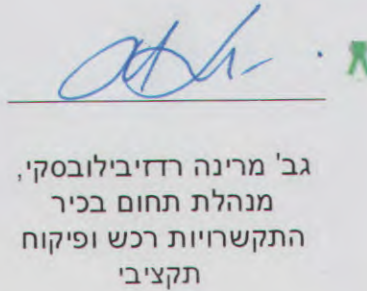 גב' מרינה רדזיבילובסקי,
מנהלת תחום בכיר
התקשרויות רכש ופיקוח
תקציבי